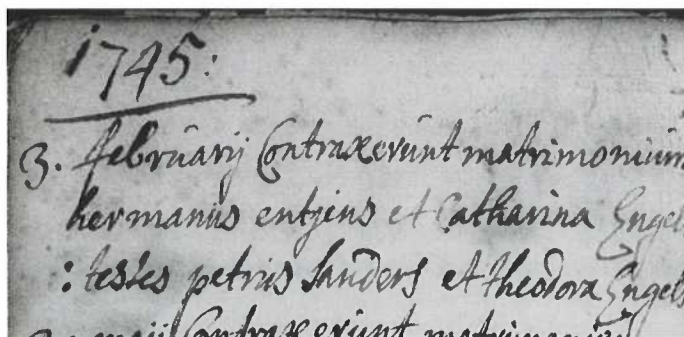 1745:
3. februarij Contraxerunt matrimonium
hermanus entjens et Catharina Engels
: testes petrus sanders et theodora Engels
maij Contraxerunt matrimonium